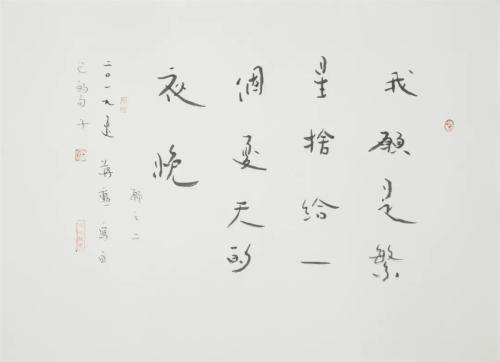 我願是繁
星捨給一
個夏天的
夜晚
願之二
二〇一九 蔣勳寫自
己的句子